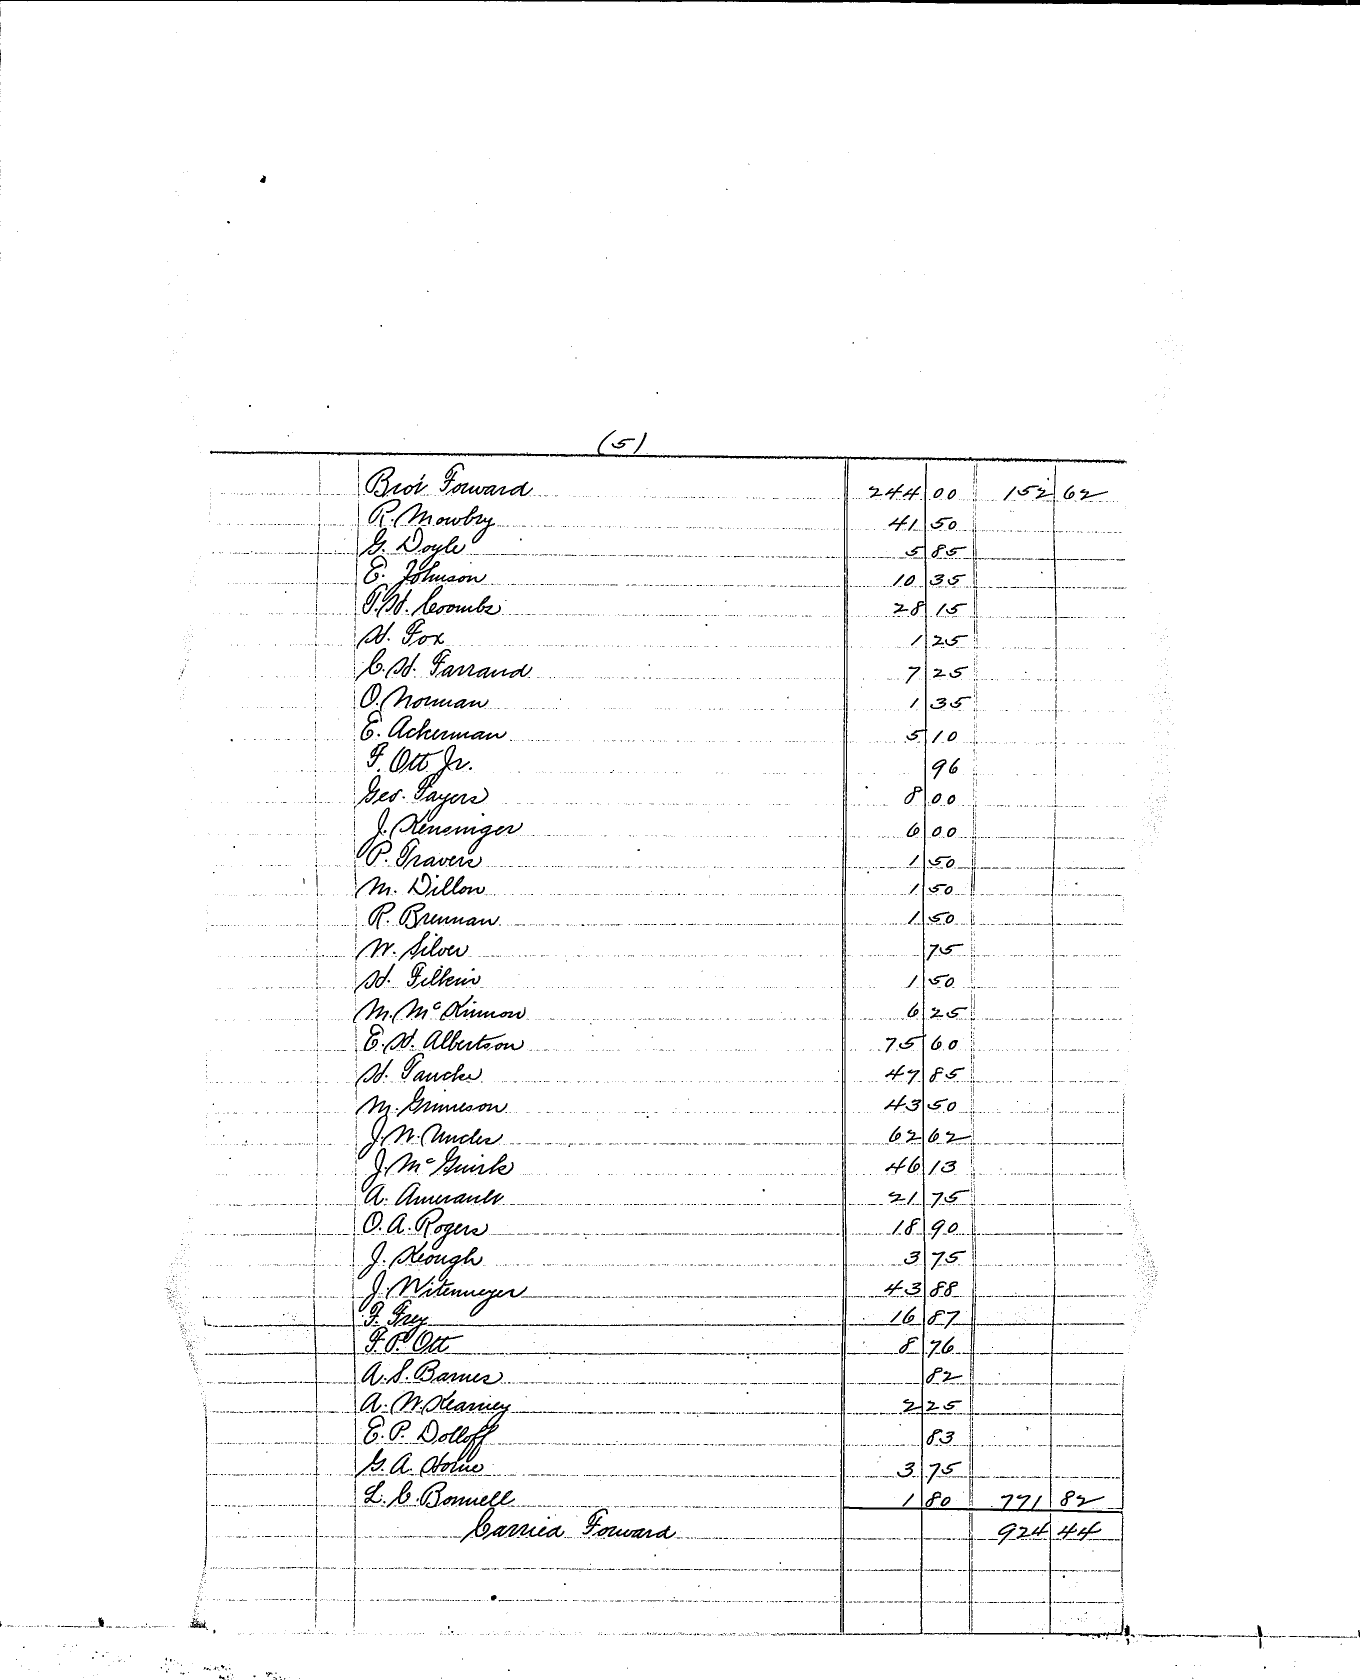 (5)
Bro't Forward 244 00 152 62
R. Mowbry 41 50
G. Doyle 5 85
E. Johnson 10 35
T.H. Coombs 28 15
H. Fox 1 25
C.H. Farrand 7 25
O. Norman 1 35
E. Ackerman 5 10
F. Ott Jr. 96
Geo. Sayers 8 00
J. Kensinger 6 00
P. Travers 1 50
M. Dillon 1 50
R. Brennan 1 50
W. Silver 75
H. Filkin 1 50
M. McKinnon 6 25
E.H. Albertson 75 60
H. 47 85
M. Grimeson 43 50
J.W. 62 62
J. McGuirk 46 13
A. Amerault 21 75
O.A. Rogers 18 90
J. Keough 3 75
J. Witemeyer 43 88
F. Frey 16 87
F.P. Ott 8 76
A.S. Barnes 82
A.W. Kearney 2 25
E.P. Dolloff 83
G.A. 3 75
L.C. Bonnell 1 80 771 82
Carried Forward 924 44